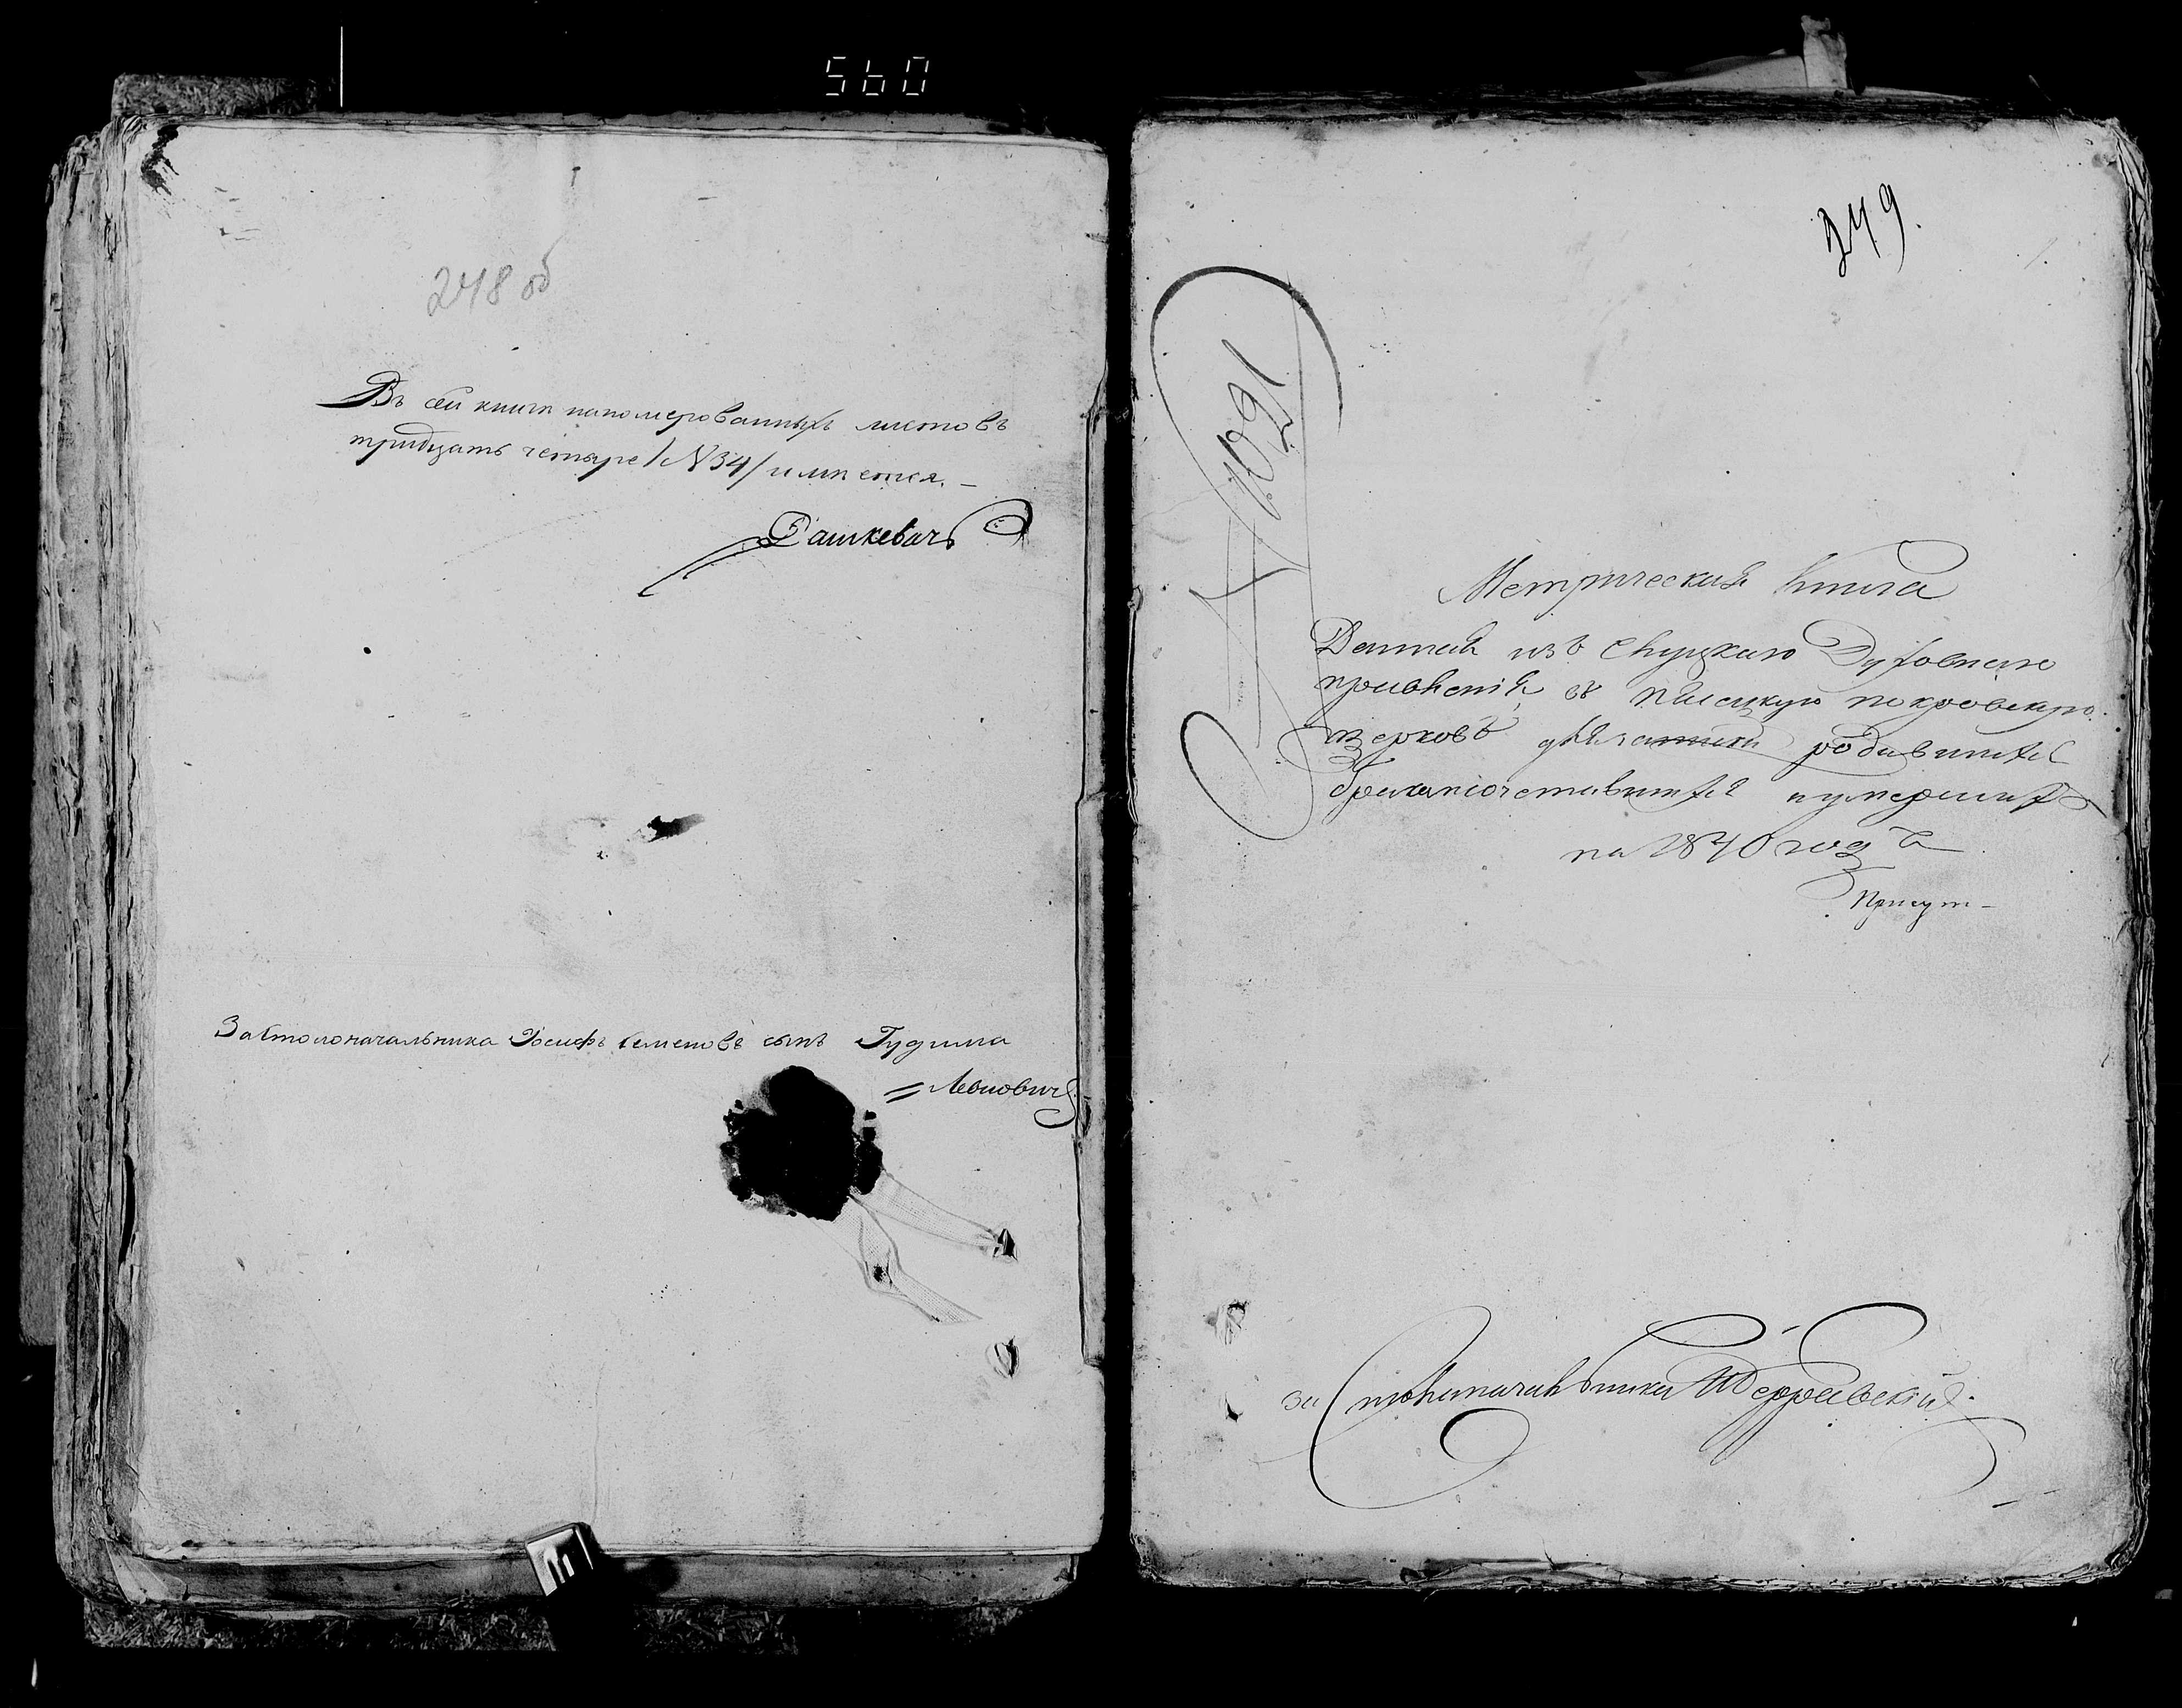 560
248 об
Въ сей книгѣ нанумерованныхъ листовъ
тридцать четыре /№34/ имѣется. –
Дашкевичъ
За Столоначальника Іосифъ Семеновъ сынъ Гудима
= Левковичъ
249.
№ 1091
Метрическая книга
Данная изъ Слуцкаго Духовнаго
правленія, въ покровскую
церковь родившихся
бракомсочетавшихся и умершихъ
на 1840 годъ
Присут–
за Столоначальника